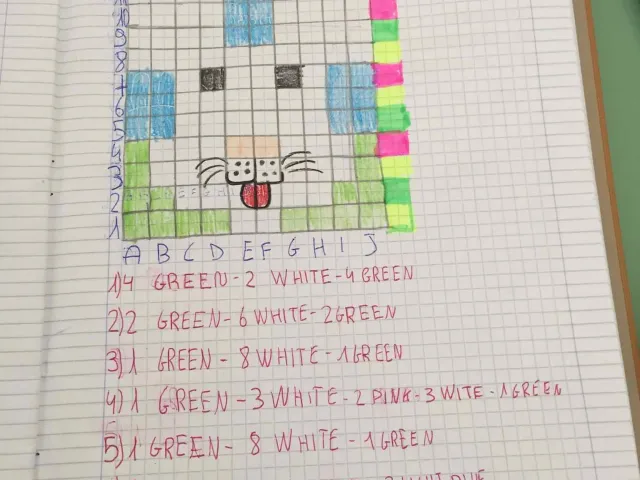 10
9
8
7
6
5
4
3
2
1
A B C D E F G H I J
1) 4 GREEN - 2 WHITE - 4 GREEN
2) 2 GREEN - 6 WHITE - 2 GREEN
3) 1 GREEN - 8 WHITE - 1 GREEN
4) 1 GREEN - 3 WHITE - 2 PINK - 3 WITE - 1 GREEN
5) 1 GREEN - 8 WHITE - 1 GREEN